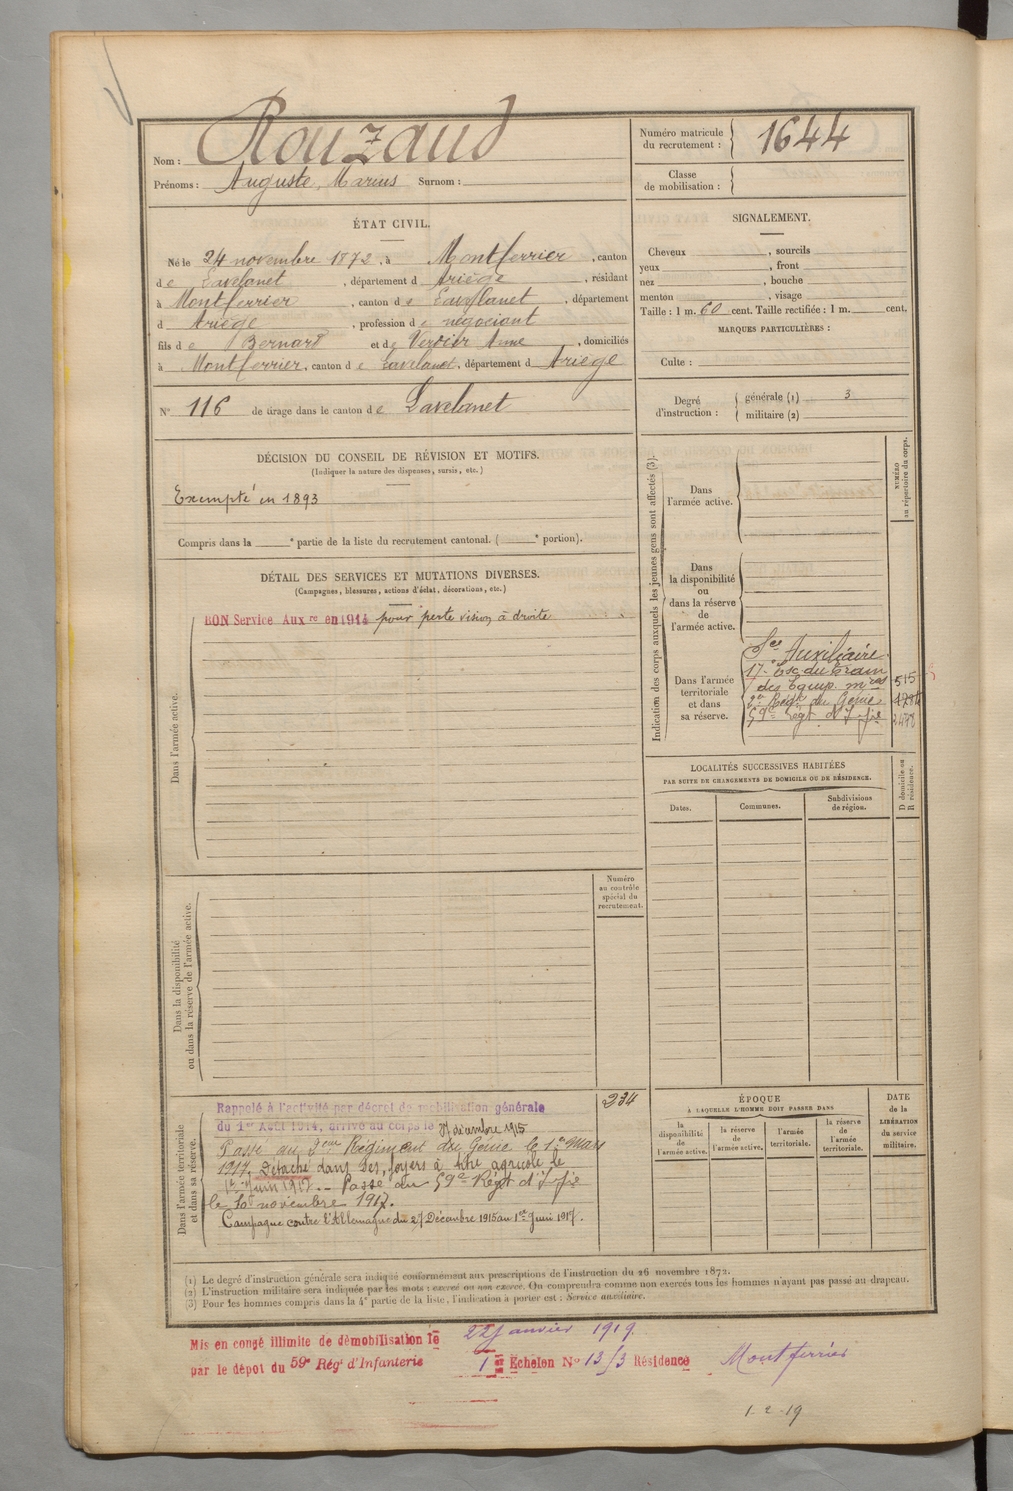 Nom : Rouzaud
Prénoms : Auguste, Marius Surnom :
Numéro matricule du recrutement : 1644
Classe de mobilisation :
ÉTAT CIVIL.
Né le 24 novembre 1872, à Montferrier, canton
de Lavelanet, département d Ariège, résidant
à Montferrier, canton de Lavelanet, département
d Ariège, profession de négociant
fils de Bernard et de Verdier Anne, domiciliés
à Montferrier, canton de Lavelanet, département d Ariège
N° 116 de tirage dans le canton de Lavelanet
SIGNALEMENT.
Cheveux , sourcils
yeux , front
nez , bouche
menton , visage
Taille : 1 m. 60 cent. Taille rectifiée : 1 m. cent.
MARQUES PARTICULIÈRES :
Culte :
Degré d'instruction : générale (1) 3
militaire (2)
DÉCISION DU CONSEIL DE RÉVISION ET MOTIFS.
(Indiquer la nature des dispenses, sursis, etc.)
Exempté en 1893
Compris dans la e partie de la liste du recrutement cantonal. ( e portion).
DÉTAIL DES SERVICES ET MUTATIONS DIVERSES.
(Campagnes, blessures, actions d'éclat, décorations, etc.)
Dans l'armée active.
BON Service Auxre en 1914 pour perte vision à droite
Dans la disponibilité
ou dans la réserve de l'armée active.
Numéro
au contrôle
spécial du
recrutement.
Dans l'armée territoriale
et dans sa réserve.
234
Rappelé à l'activité par décret de mobilisation générale
du 1er Août 1914, arrivé au corps le 27 décembre 1915
Passé au 2ème Régiment du Génie le 1er Mars
1917. Détaché dans ses foyers à titre agricole le
1er Juin 1917. – Passé au 59e Régt d'Infie
le 10 novembre 1917.
Campagne contre l'Allemagne du 27 Décembre 1915 au 1er Juin 1917.
Indication des corps auxquels les jeunes gens sont affectés (3).
NUMÉRO
au répertoire du corps.
Dans
l'armée active.
Dans
la disponibilité
ou
dans la réserve
de
l'armée active.
Dans l'armée
territoriale
et dans
sa réserve.
Sce Auxiliaire
17e Esc. du Train
des Equip. mres 515
2e Régt du Génie
59e Régt d'Infie
LOCALITÉS SUCCESSIVES HABITÉES
PAR SUITE DE CHANGEMENTS DE DOMICILE OU DE RÉSIDENCE.
Dates.
Communes.
Subdivisions
de région.
D domicile ou
R résidence.
ÉPOQUE
À LAQUELLE L'HOMME DOIT PASSER DANS
la
disponibilité
de
l'armée active.
la réserve
de
l'armée active.
l'armée
territoriale.
la réserve
de
l'armée
territoriale.
DATE
de la
LIBÉRATION
du service
militaire.
(1) Le degré d'instruction générale sera indiqué conformément aux prescriptions de l'instruction du 26 novembre 1872.
(2) L'instruction militaire sera indiquée par les mots : exercé ou non exercé. On comprendra comme non exercés tous les hommes n'ayant pas passé au drapeau.
(3) Pour les hommes compris dans la 4e partie de la liste, l'indication à porter est : Service auxiliaire.
Mis en congé illimité de démobilisation le 22 janvier 1919
par le dépôt du 59e Régt d'Infanterie 1er Echelon N° 13/3 Résidence Montferrier
1-2-19